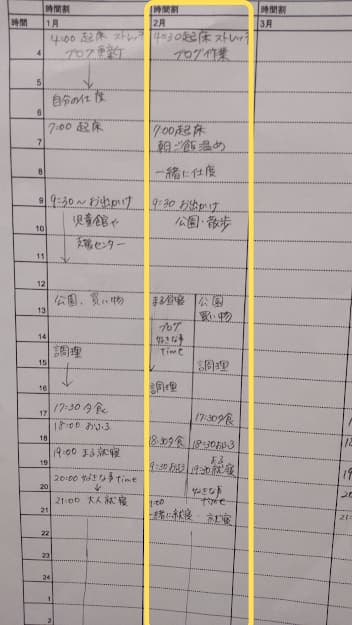 時間割
時間割
時間割
時間
1月
2月
3月
4
4:00 起床 ストレッチ
ブログ更新
5
6
自分の仕度
7
7:00 起床
8
9
9:30〜お出かけ
10
児童館や
支援センター
11
12
13
公園、買い物
14
15
調理
16
17
17:30 夕食
18
18:00 おふろ
19
19:00 まる就寝
20
20:00 好きな事time
21
21:00 大人就寝
22
23
24
1
2
4:30起床 ストレッチ
ブログ作業
7:00起床
朝ご飯温め
一緒に仕度
9:30 お出かけ
公園・散歩
まる昼寝
ブログ
好きな事
time
調理
18:30夕食
19:30おふろ
一緒に就寝
公園
買い物
調理
17:30夕食
18:30おふろ
まる
19:30就寝
好きな事
time
就寝